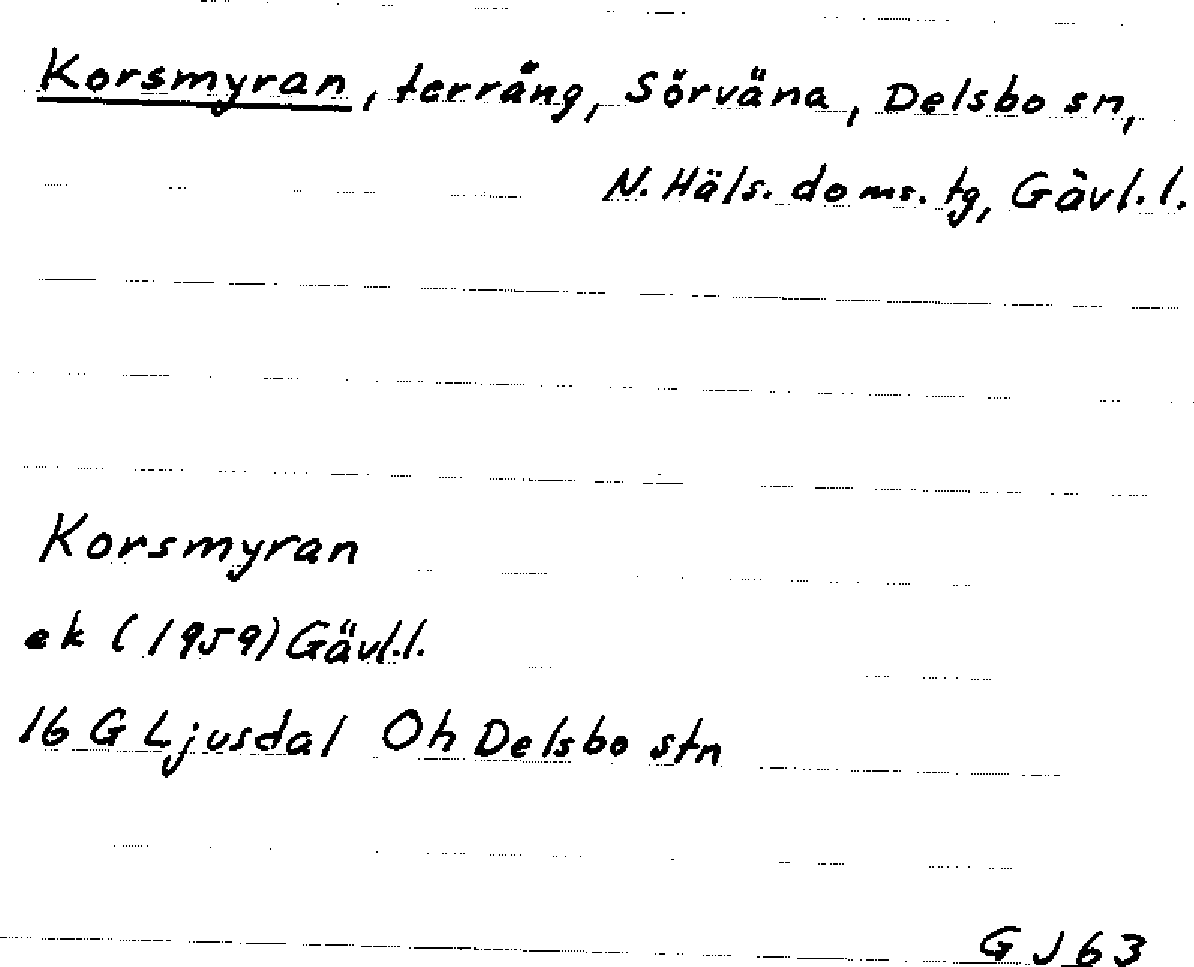 Korsmyran, terräng, Sörväna, Delsbo sn,
N. Häls. doms. tg, Gävl. l.
Korsmyran
ek (1959) Gävl. l.
16 G Ljusdal Oh Delsbo stn
G J 63